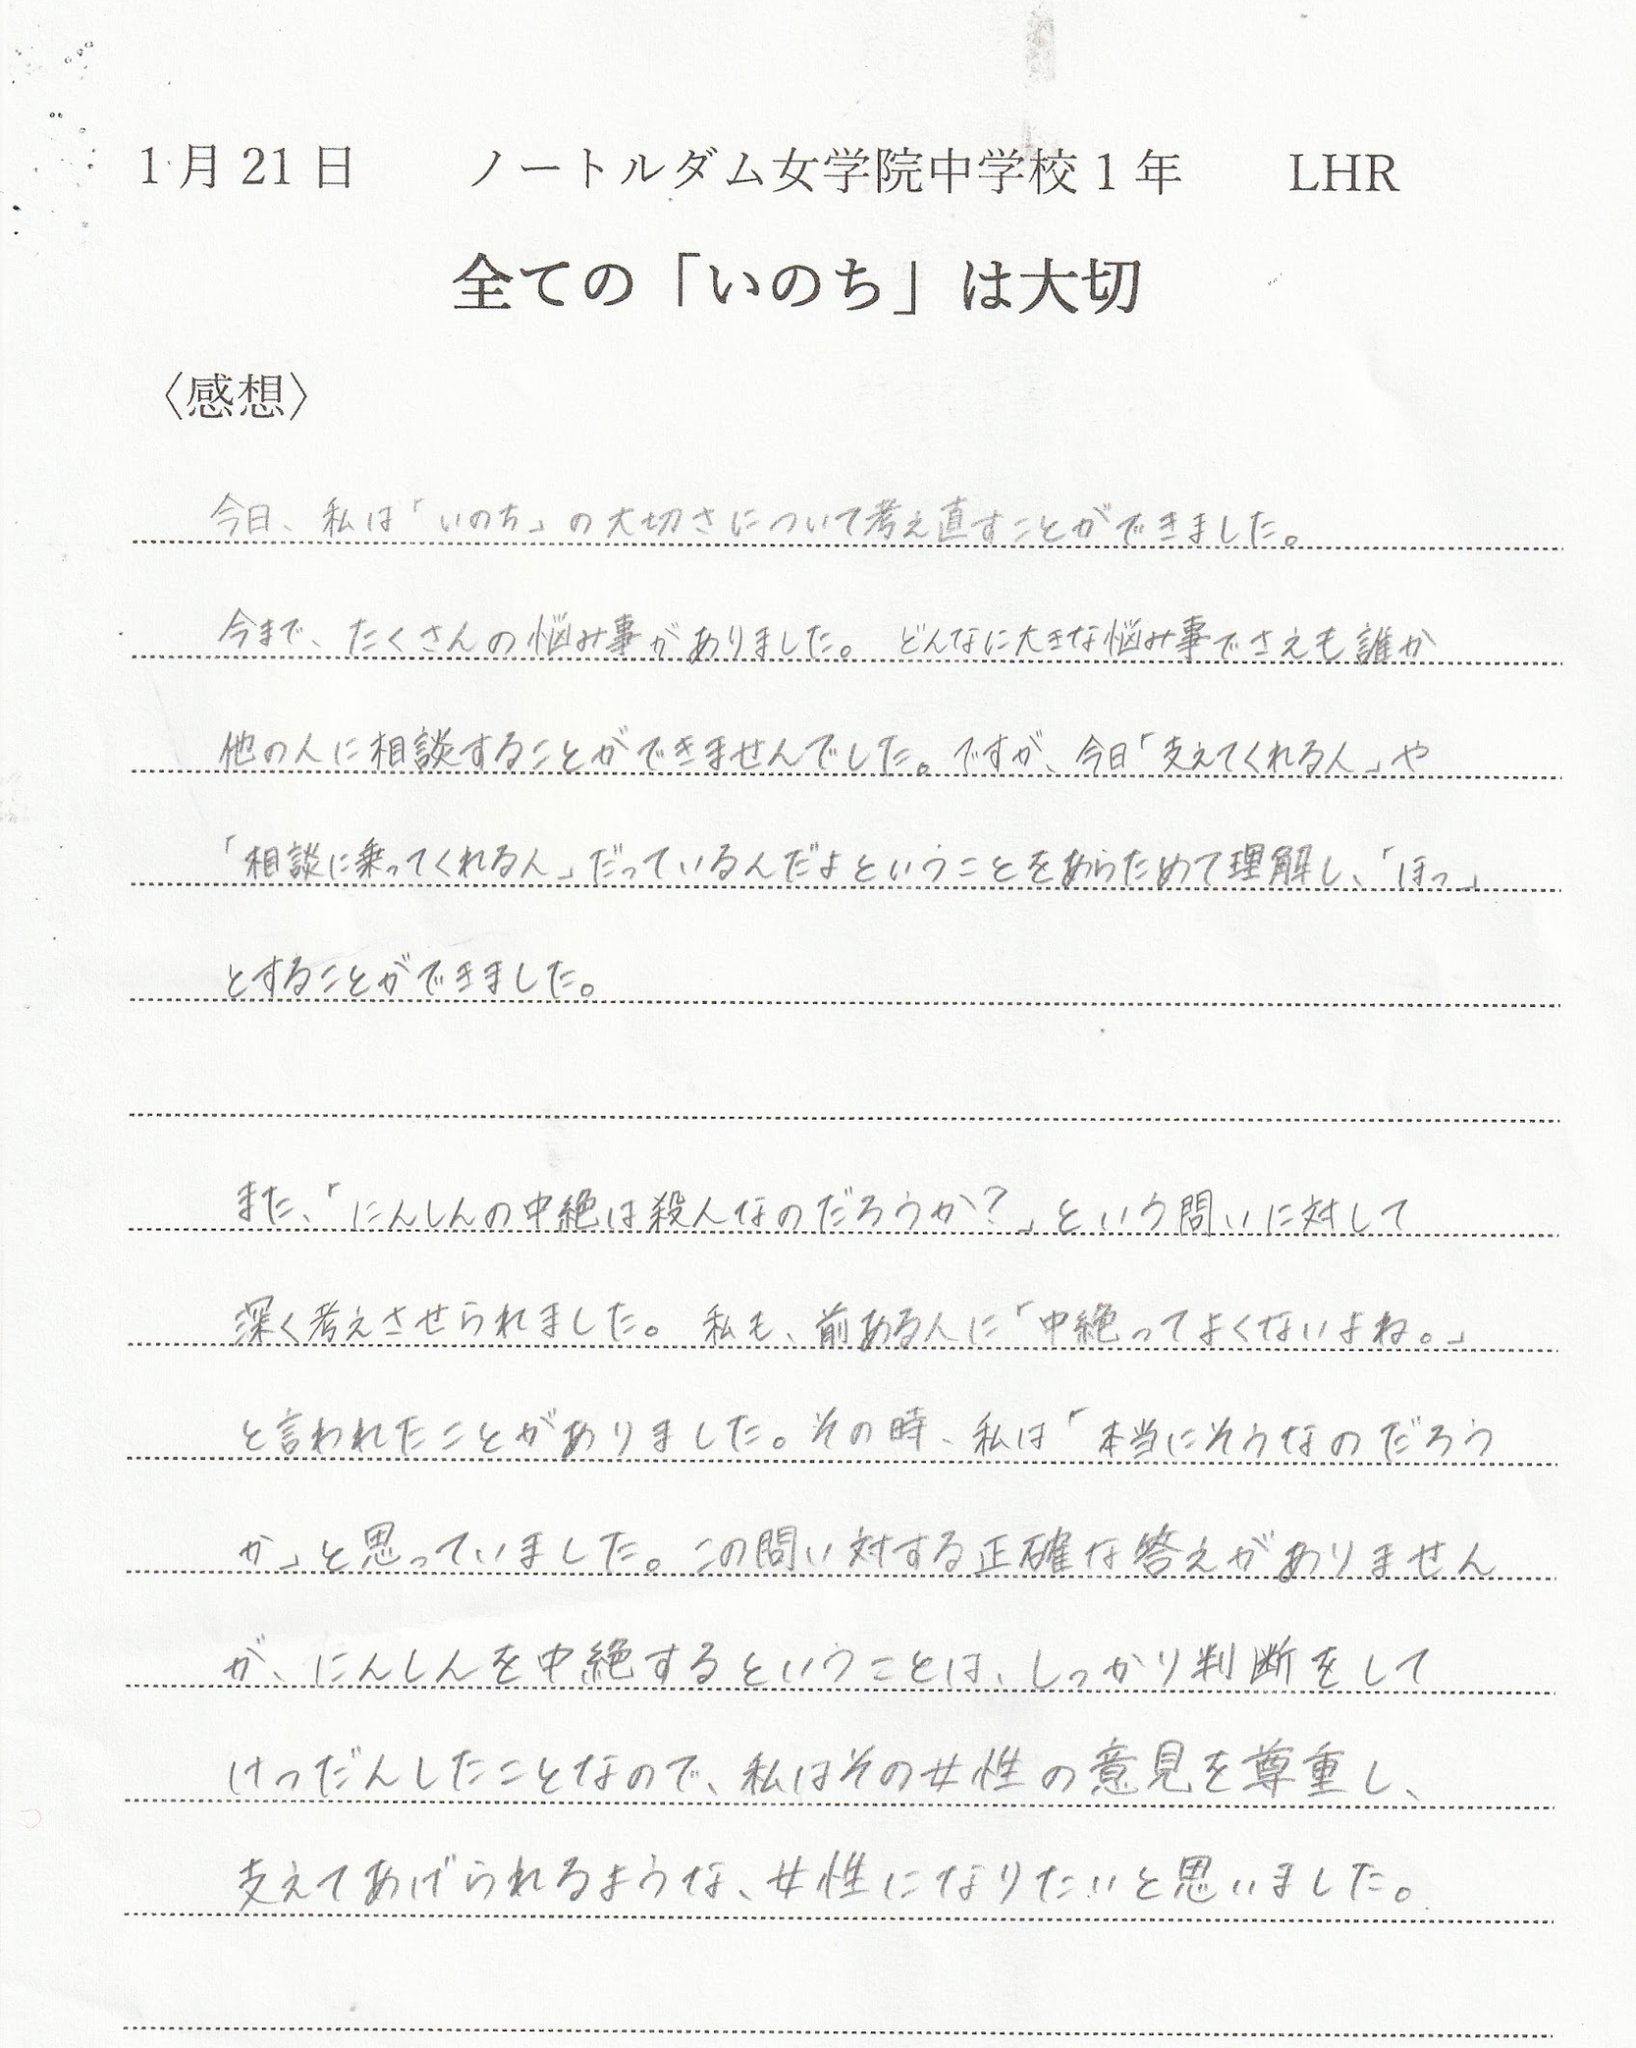 1月21日 ノートルダム女学院中学校1年 LHR
全ての「いのち」は大切
〈感想〉
今日、私は「いのち」の大切さについて考え直すことができました。
今まで、たくさんの悩み事がありました。どんなに大きな悩み事でさえも誰か
他の人に相談することができませんでした。ですが、今日「支えてくれる人」や
「相談に乗ってくれる人」だっているんだよということをあらためて理解し、「ほっ」
とすることができました。
また、「にんしんの中絶は殺人なのだろうか?」という問いに対して
深く考えさせられました。私も、前ある人に「中絶ってよくないよね。」
と言われたことがありました。その時、私は「本当にそうなのだろう
か」と思っていました。この問い対する正確な答えがありません
が、にんしんを中絶するということは、しっかり判断をして
けつだんしたことなので、私はその女性の意見を尊重し、
支えてあげられるような、女性になりたいと思いました。